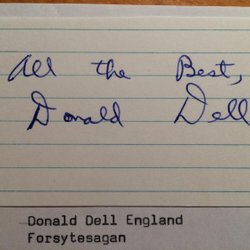 All the Best,
Donald Dell
Donald Dell England
Forsytesagan